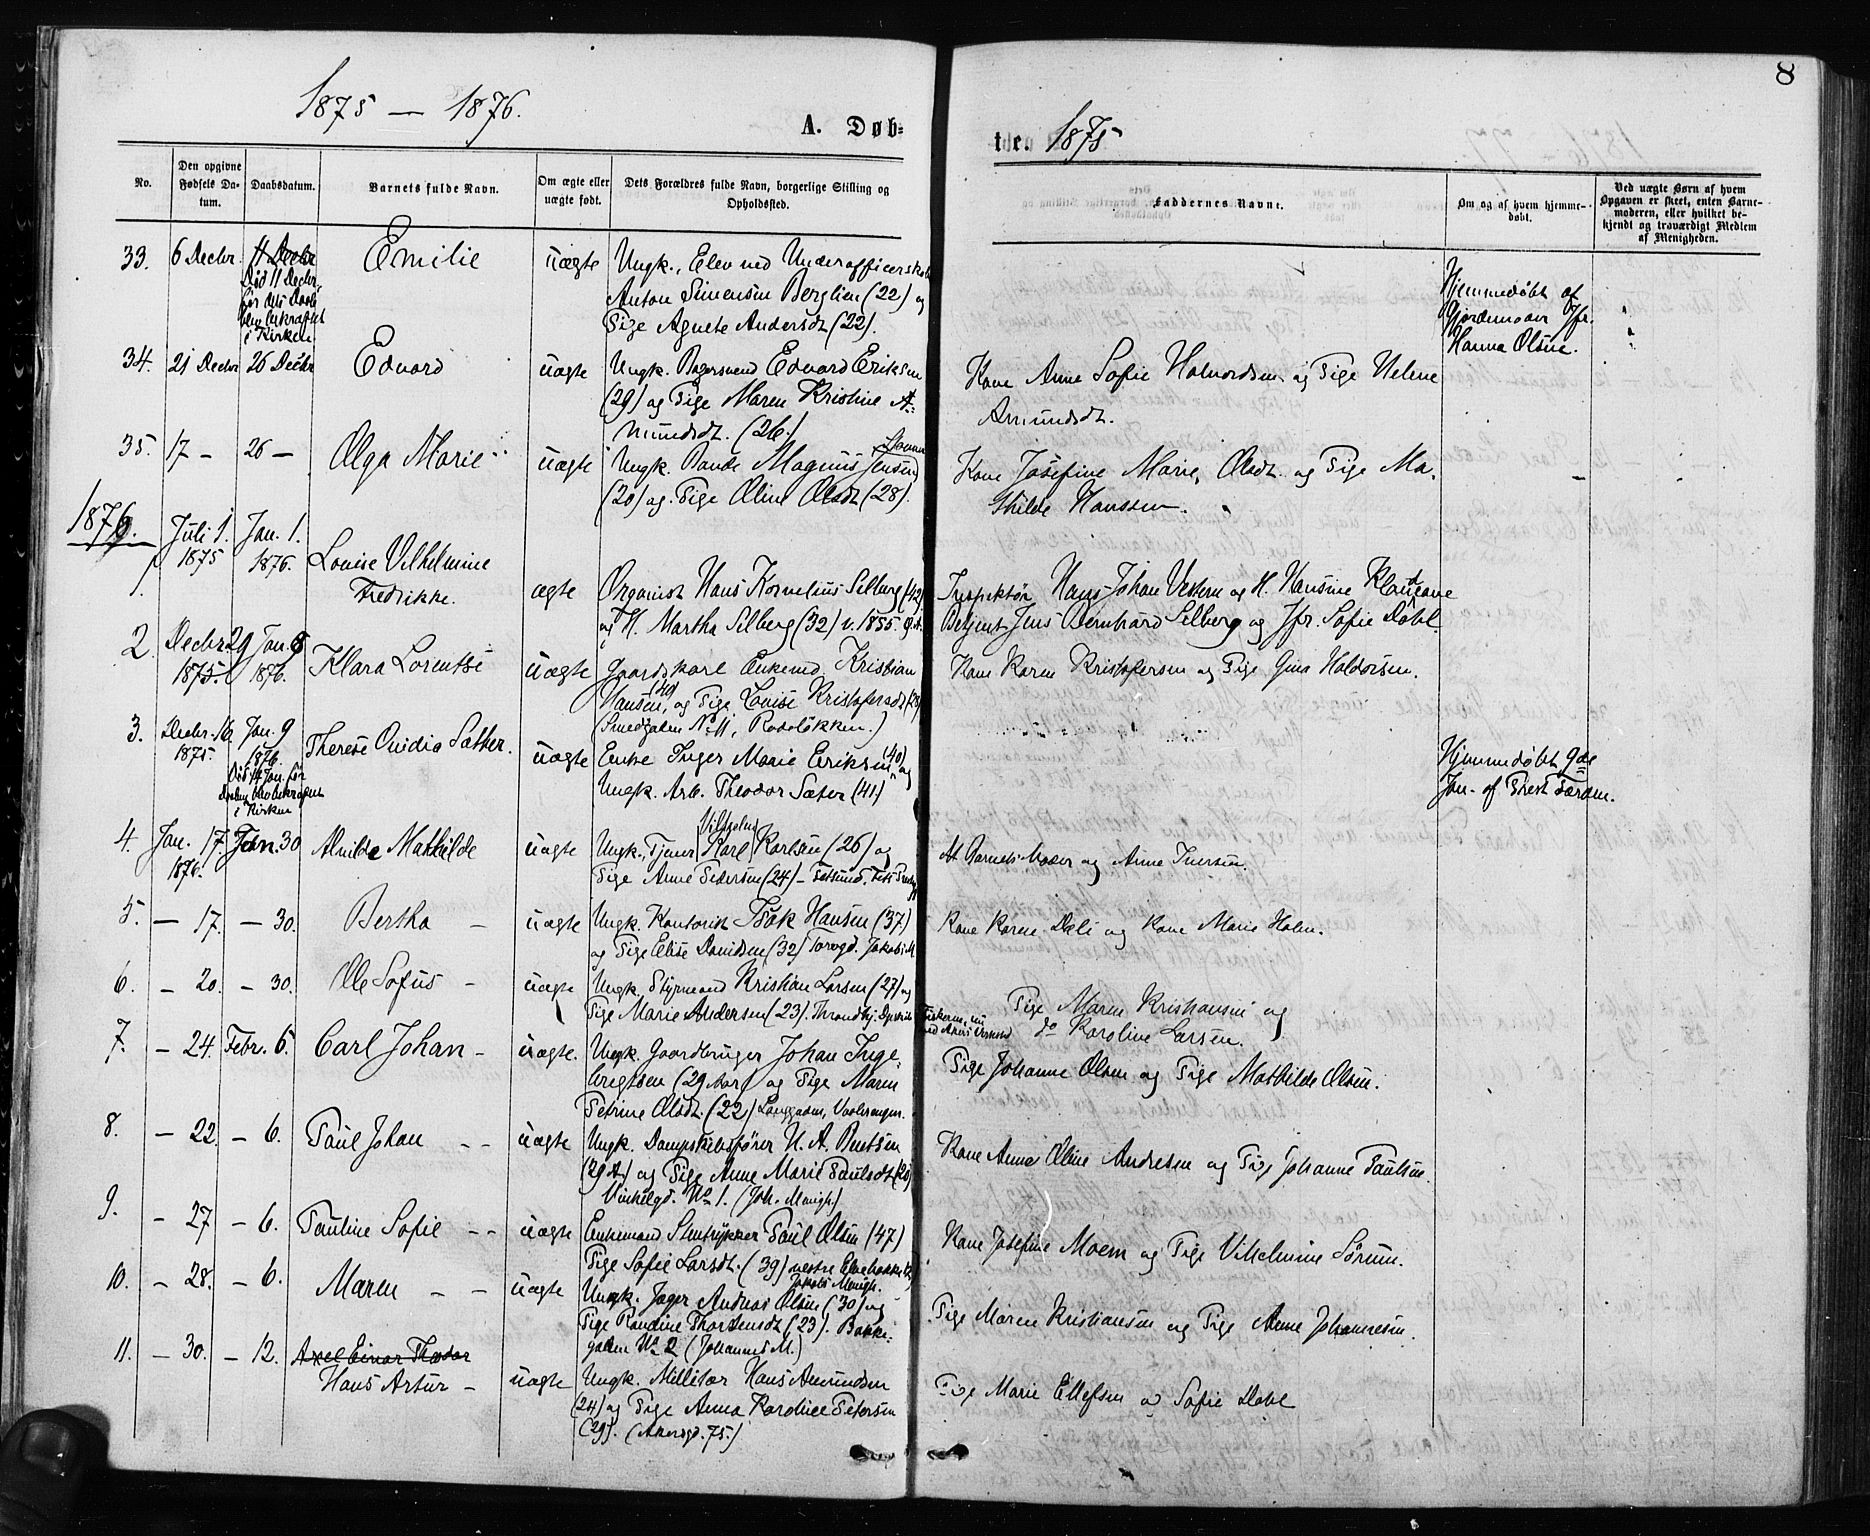 1875 — 1876.
A. Døb-
No.
Den opgivne Fødsels Da-tum.
Daabsdatum.
Barnets fulde Navn.
Om ægte eller uægte født.
Dets Forældres fulde Navn, borgerlige Stilling og Opholdssted.
33. 6 Decbr. 11 Decbr Emilie uægte Ungk., Elev ved Underofficerskol
Død 11 Decbr. Anton Simensen Berglien (22) og
i Kirken Pige Agnete Andersdt (22).
34. 21 Decbr 26 Decbr Edvard uægte Ungk. Bagersvend Edvard Eriksen
(29) og Pige Maren Kristine A-
mundsdt. (26.)
35. 17 — 26 — Olga Marie uægte Ungk. Magnus Jensen
(20) og Pige Oline Olsdt (28).
1876.
1. Juli 1. 1875 Jan. 1. 1876. Lovise Vilhelmine
Fredrikke. ægte Organist Hans Kornelius Selberg (42)
og H. Martha Selberg (32) v. 1855.
2. Decbr 29 1875. Jan. 6 1876. Klara Lorentse uægte Gaardskarl Enkemd. Kristian
Hansen, (40) og Pige Lovise Kristofersdt
(Smedgaden No 11, Rodeløkken.)
3. Decbr. 16 1875. Jan. 9 1876. Therese Ovidia Sætter. uægte Enke Inger Marie Eriksen (40) og
Død 14 Jan. før i Kirken Ungk. Arb. Theodor Sæter (41)
4. Jan. 17. 1876. Jan. 30 Alvilde Mathilde uægte Ungk., Tjener Karl Vilhelm Karlsen (26) og
Pige Anne Pedersen (24) — Fetsund.
5. — 17. — 30. Bertha — uægte Ungk. Kontorist Isak Hansen (37)
og Pige Elise Davidsen (32) Torvgd. Jakobs M
6. — 20. — 30. Ole Sofus — uægte Ungk. Styrmand Kristian Larsen (27) og
Pige Marie Andersen (23).
7. — 24. Febr. 6. Carl Johan — uægte. Ungk. Gaardbruger Johan Inge-
brigtsen (29 Aar) og Pige Maren
Petrine Olsdt. (22) Langgaden, Vaalerengen.
8. — 22. — 6. Paul Johan — — uægte Ungk. Dampskibsfører H. A. Berntsen
(29 A) og Pige Anne Marie Paulsdt (20)
Vinkelgd. No 1. (Joh. Menigh.)
9. — 27 — 6. Pauline Sofie — — uægte Enkemand Stentrykker Paul Olsen (47)
Pige Sofie Larsdt. (39) nedre Elvebakke
Jakobs Menigh.
10. — 28. — 6. Maren — — uægte Ungk. Jæger Andreas Olsen (30) og
Pige Randine Thorstensdt (23). Bakke-
gaden No 2 (Johannes M.)
11. — 30. — 12. Axel Einar Theodor
Hans Artur — uægte Ungk. Militær Hans Amundsen
(24) og Pige Anna Karoline Petersen
(29). (Akersgd. 75.)
8
te. 1875
Faddernes Navne.
Om og af hvem hjemme-døbt.
Ved uægte Børn af hvem Opgaven er skeet, enten Barne-moderen, eller hvilket be-kjendt og troværdigt Medlem af Menigheden.
Hjemmedøbt af
Gjordemoder Jfr.
Hanna Olsen.
Kone Anne Sofie Halvordsen og Pige Helene
Amundsdt.
Kone Josefine Marie Olsdt og Pige Ma-
thilde Hanssen.
Inspektør Hans Johan Vestern og H. Hansine
Betjent Jens Bernhard Selberg og Jfr. Sofie Dahl.
Kone Karen Kristofersen og Pige Gina Haldorsen.
Hjemmedøbt 9de
Jan. af Prest Færden.
Af Barnets Moder og Anne Iversen.
Kone Karen Dæli og Kone Marie Holm.
Pige Maren Kristiansen og
do Karoline Larsen.
Pige Johanne Olsen og Pige Mathilde Olsen.
Kone Anne Oline Andresen og Pige Johanne Paulsen.
Kone Josefine Moem og Pige Vilhelmine Sørum.
Pige Maren Kristiansen og Pige Anne Johannesen.
Pige Marie Ellefsen og Sofie Dahl